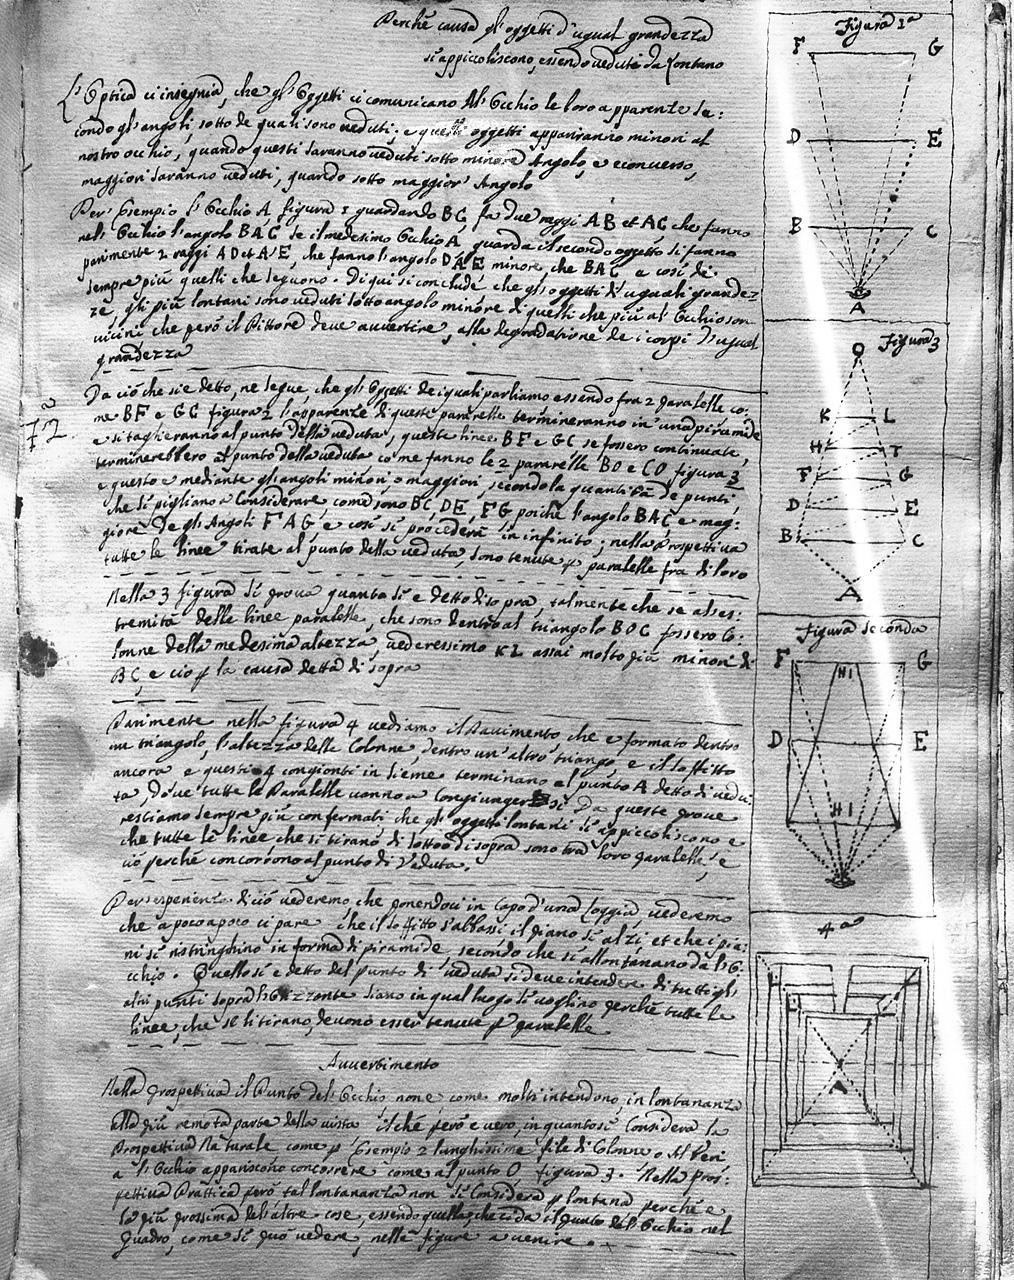 Perche causa gl'oggetti d'ugual grandezza
si appicoliscono, essendo veduti da lontano
L'Optica ci insegna, che gl'Oggetti ci comunicano all'Occhio le loro apparenze se:
condo gl'angoli, sotto de quali sono veduti; e questi oggetti appariranno minori al
nostro occhio, quando questi saranno veduti sotto minore Angolo, e econverso,
maggiori saranno veduti, quando sotto maggior Angolo
Per Esempio l'Occhio A figura 1 guardando BC, fa due raggi AB et AC che fanno
nell'Occhio l'angolo BAC se il medesimo Occhio A, guarda il secondo oggetto si fanno
parimente 2 raggi AD et AE, che fanno l'angolo DAE minore, che BAC e così de
sempre più quelli che seguono. Di qui si conclude che gl'oggetti d'uguali grandez
ze, gli più lontani sono veduti sotto angolo minore di quelli che più al Occhio son
vicini che però il Pittore deve avvertire, alla degradatione de i corpi d'ugual
grandezza
Da ciò che si e detto, ne segue, che gl'Oggetti de i quali parliamo essendo fra 2 paralelle co:
me BF e GC figura 2 l'apparenze di queste pararelle termineranno in una piramide
e si taglieranno al punto della veduta, queste linee BF e GC se fossero continuate,
terminerebbero al punto della veduta come fanno le 2 pararelle BO e CO figura 3
e questo e mediante gl'angoli minori o maggiori, secondo la quantità de punti,
che si pigliano a considerare, come sono BC, DE, FG poiche l'angolo BAC e mag:
giore de gl'Angoli FAG e cosi si procederà in infinito; nella Prospettiva
tutte le linee tirate al punto della veduta, sono tenute p paralelle fra di loro
Nella 3 figura si prova quanto si e detto di sopra, talmente che se all'es:
tremità delle linee paralelle, che sono dentro al triangolo BOC fossero Co:
lonne della medesima altezza, vederessimo KL assai molto più minori di
BC, e ciò p la causa detta di sopra
Parimente nella figura 4 vediamo il Pavimento che e formato dentro
un triangolo, l'altezza delle Colonne, dentro un'altro triango e il soffitto
ancora e questi 4 congionti insieme terminano al punto A detto di vedu
ta, dove tutte le Paralelle vanno a congiungersi. Da queste prove
restiamo sempre più confermati che gl'oggetti lontani si appicoliscono e
che tutte le linee che si tirano di sotto o di sopra sono tra loro paralelle, e
ciò perche concorrono al punto di Veduta.
Per esperienza di ciò vederemo che ponendoci in capo d'una Loggia, vederemo
che a poco a poco ci pare che il soffitto s'abbassi, il piano si alzi, et che i pia:
ni si ristringhino in forma di piramide, secondo che si allontanano da l'O:
cchio. Quello si e detto del punto di veduta si deve intendere di tutti gl'
altri punti sopra l'Orizzonte siano in qual luogo si voglino perchè tutte le
linee, che se li tirano, devono esser tenute p paralelle
Avvertimento
Nella prospettiva il Punto del'Occhio non e come molti intendono, in lontananza
alla più remota parte della vista il che però e vero, in quanto si Considera la
Prospettiva Naturale come p Esempio 2 lunghissime file di Colonne o Alberi
a l'Occhio appariscono concorrere come al punto O figura 3. Nella Pros:
pettiva Prattica però tal lontananza non si Considera p lontana perche e
la più prossima del'altre cose, essendo quella, che ci da il punto del'Occhio nel
Quadro, come si può vedere, nelle figure a venire.
Figura 1a
F G
D E
B C
A
Figura 3
O
K L
H I
F G
D E
B C
A
Figura seconda
F G
H I
D E
H I
4a
A